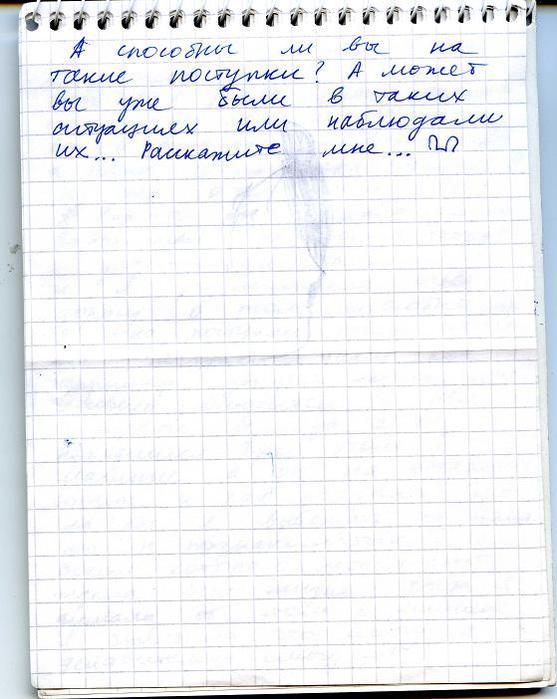 А способны ли вы на
такие поступки? А может
вы уже были в таких
ситуациях или наблюдали
их... Расскажите мне...